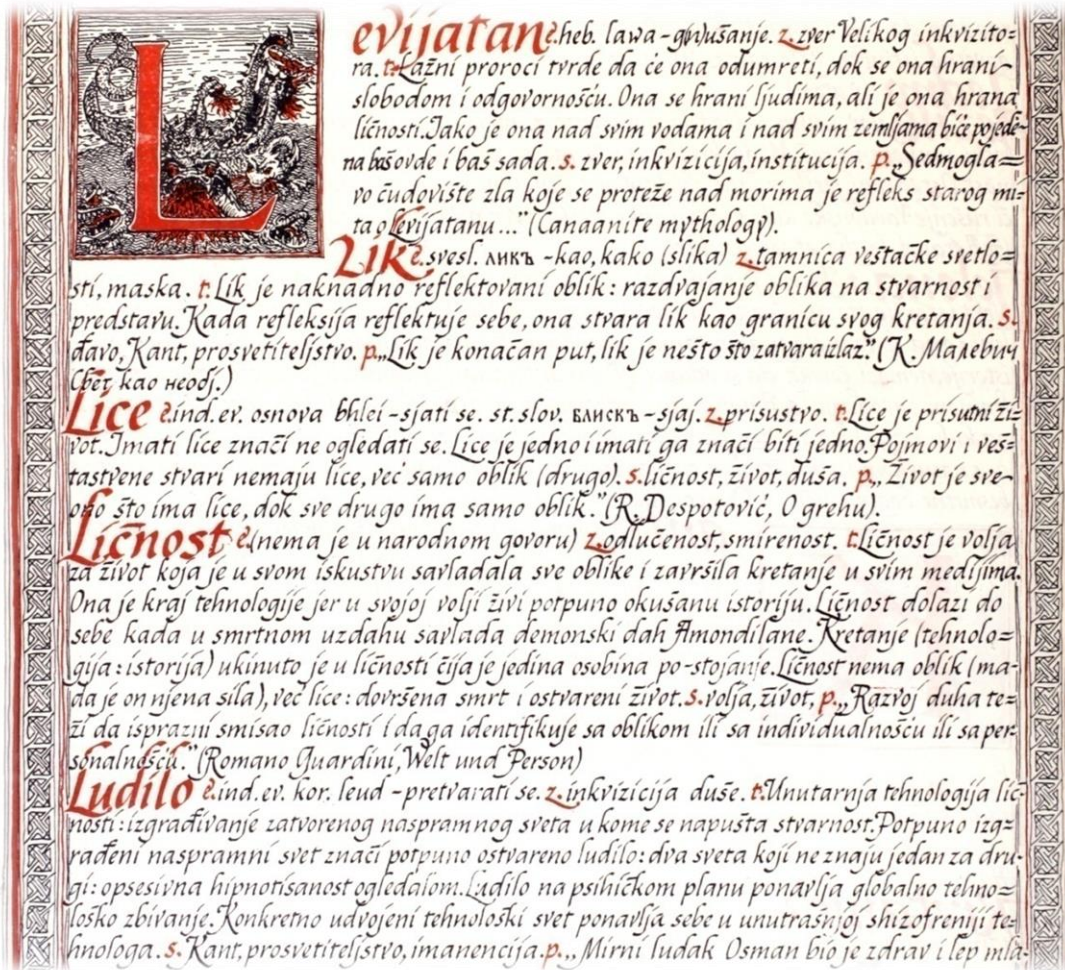 Levijatan e. heb. lawa - gnušanje. z. zver Velikog inkvizito=
ra. t. Lažni proroci tvrde da će ona odumreti, dok se ona hrani
slobodom i odgovornošću. Ona se hrani ljudima, ali je ona hrana
ličnosti. Iako je ona nad svim vodama i nad svim zemljama biće pojede=
na baš ovde i baš sada. s. zver, inkvizicija, institucija. p. „Sedmogla=
vo čudovište zla koje se proteže nad morima je refleks starog mi=
ta o Levijatanu..." (Canaanite mythology).
Lik e. svesl. ликъ - kao, kako (slika) z. tamnica veštačke svetlo=
sti, maska. t. Lik je naknadno reflektovani oblik: razdvajanje oblika na stvarnost i
predstavu. Kada refleksija reflektuje sebe, ona stvara lik kao granicu svog kretanja. s.
đavo, Kant, prosvetiteljstvo. p. „Lik je konačan put, lik je nešto što zatvara izlaz." (К. Малевич
Свет као неодј.)
Lice e. ind. ev. osnova bhlei - sjati se. st. slov. блискъ - sjaj. z. prisustvo. t. Lice je prisutni ži=
vot. Imati lice znači ne ogledati se. Lice je jedno i imati ga znači biti jedno. Pojmovi i veš=
tastvene stvari nemaju lice, već samo oblik (drugo). s. ličnost, život, duša. p. „Život je sve
ono što ima lice, dok sve drugo ima samo oblik." (R. Despotović, O grehu).
Ličnost e. (nema je u narodnom govoru) z. odlučenost, smirenost. t. Ličnost je volja
za život koja je u svom iskustvu savladala sve oblike i završila kretanje u svim medijima.
Ona je kraj tehnologije jer u svojoj volji živi potpuno okušanu istoriju. Ličnost dolazi do
sebe kada u smrtnom uzdahu savlada demonski dah Amondilane. Kretanje (tehnolo=
gija: istorija) ukinuto je u ličnosti čija je jedina osobina po-stojanje. Ličnost nema oblik (ma-
da je on njena sila), već lice: dovršena smrt i ostvareni život. s. volja, život, p. „Razvoj duha te=
ži da isprazni smisao ličnosti i da ga identifikuje sa oblikom ili sa individualnošću ili sa per
sonalnešću." (Romano Guardini, Welt und Person)
Ludilo e. ind. ev. kor. leud - pretvarati se. z. inkvizicija duše. t. Unutarnja tehnologija lič-
nosti: izgrađivanje zatvorenog naspramnog sveta u kome se napušta stvarnost. Potpuno izg=
rađeni naspramni svet znači potpuno ostvareno ludilo: dva sveta koji ne znaju jedan za dru-
gi: opsesivna hipnotisanost ogledalom. Ludilo na psihičkom planu ponavlja globalno tehno=
loško zbivanje. Konkretno udvojeni tehnološki svet ponavlja sebe u unutrašnjoj shizofreniji te=
hnologa. s. Kant, prosvetiteljstvo, imanencija. p. „Mirni ludak Osman bio je zdrav i lep mla-